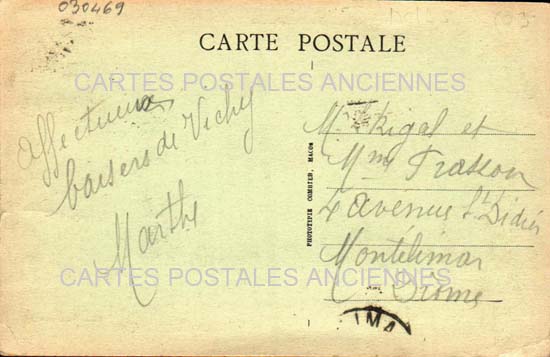 030469
CARTE POSTALE
CARTES POSTALES ANCIENNES
affectueux
baisers de Vichy
Marthe
PHOTOTYPIE COMBIER, MACON
M. Rigal et
Mme Frasson
4 avenue St Didier
Montélimar
Drome
CARTES POSTALES ANCIENNES
IMA